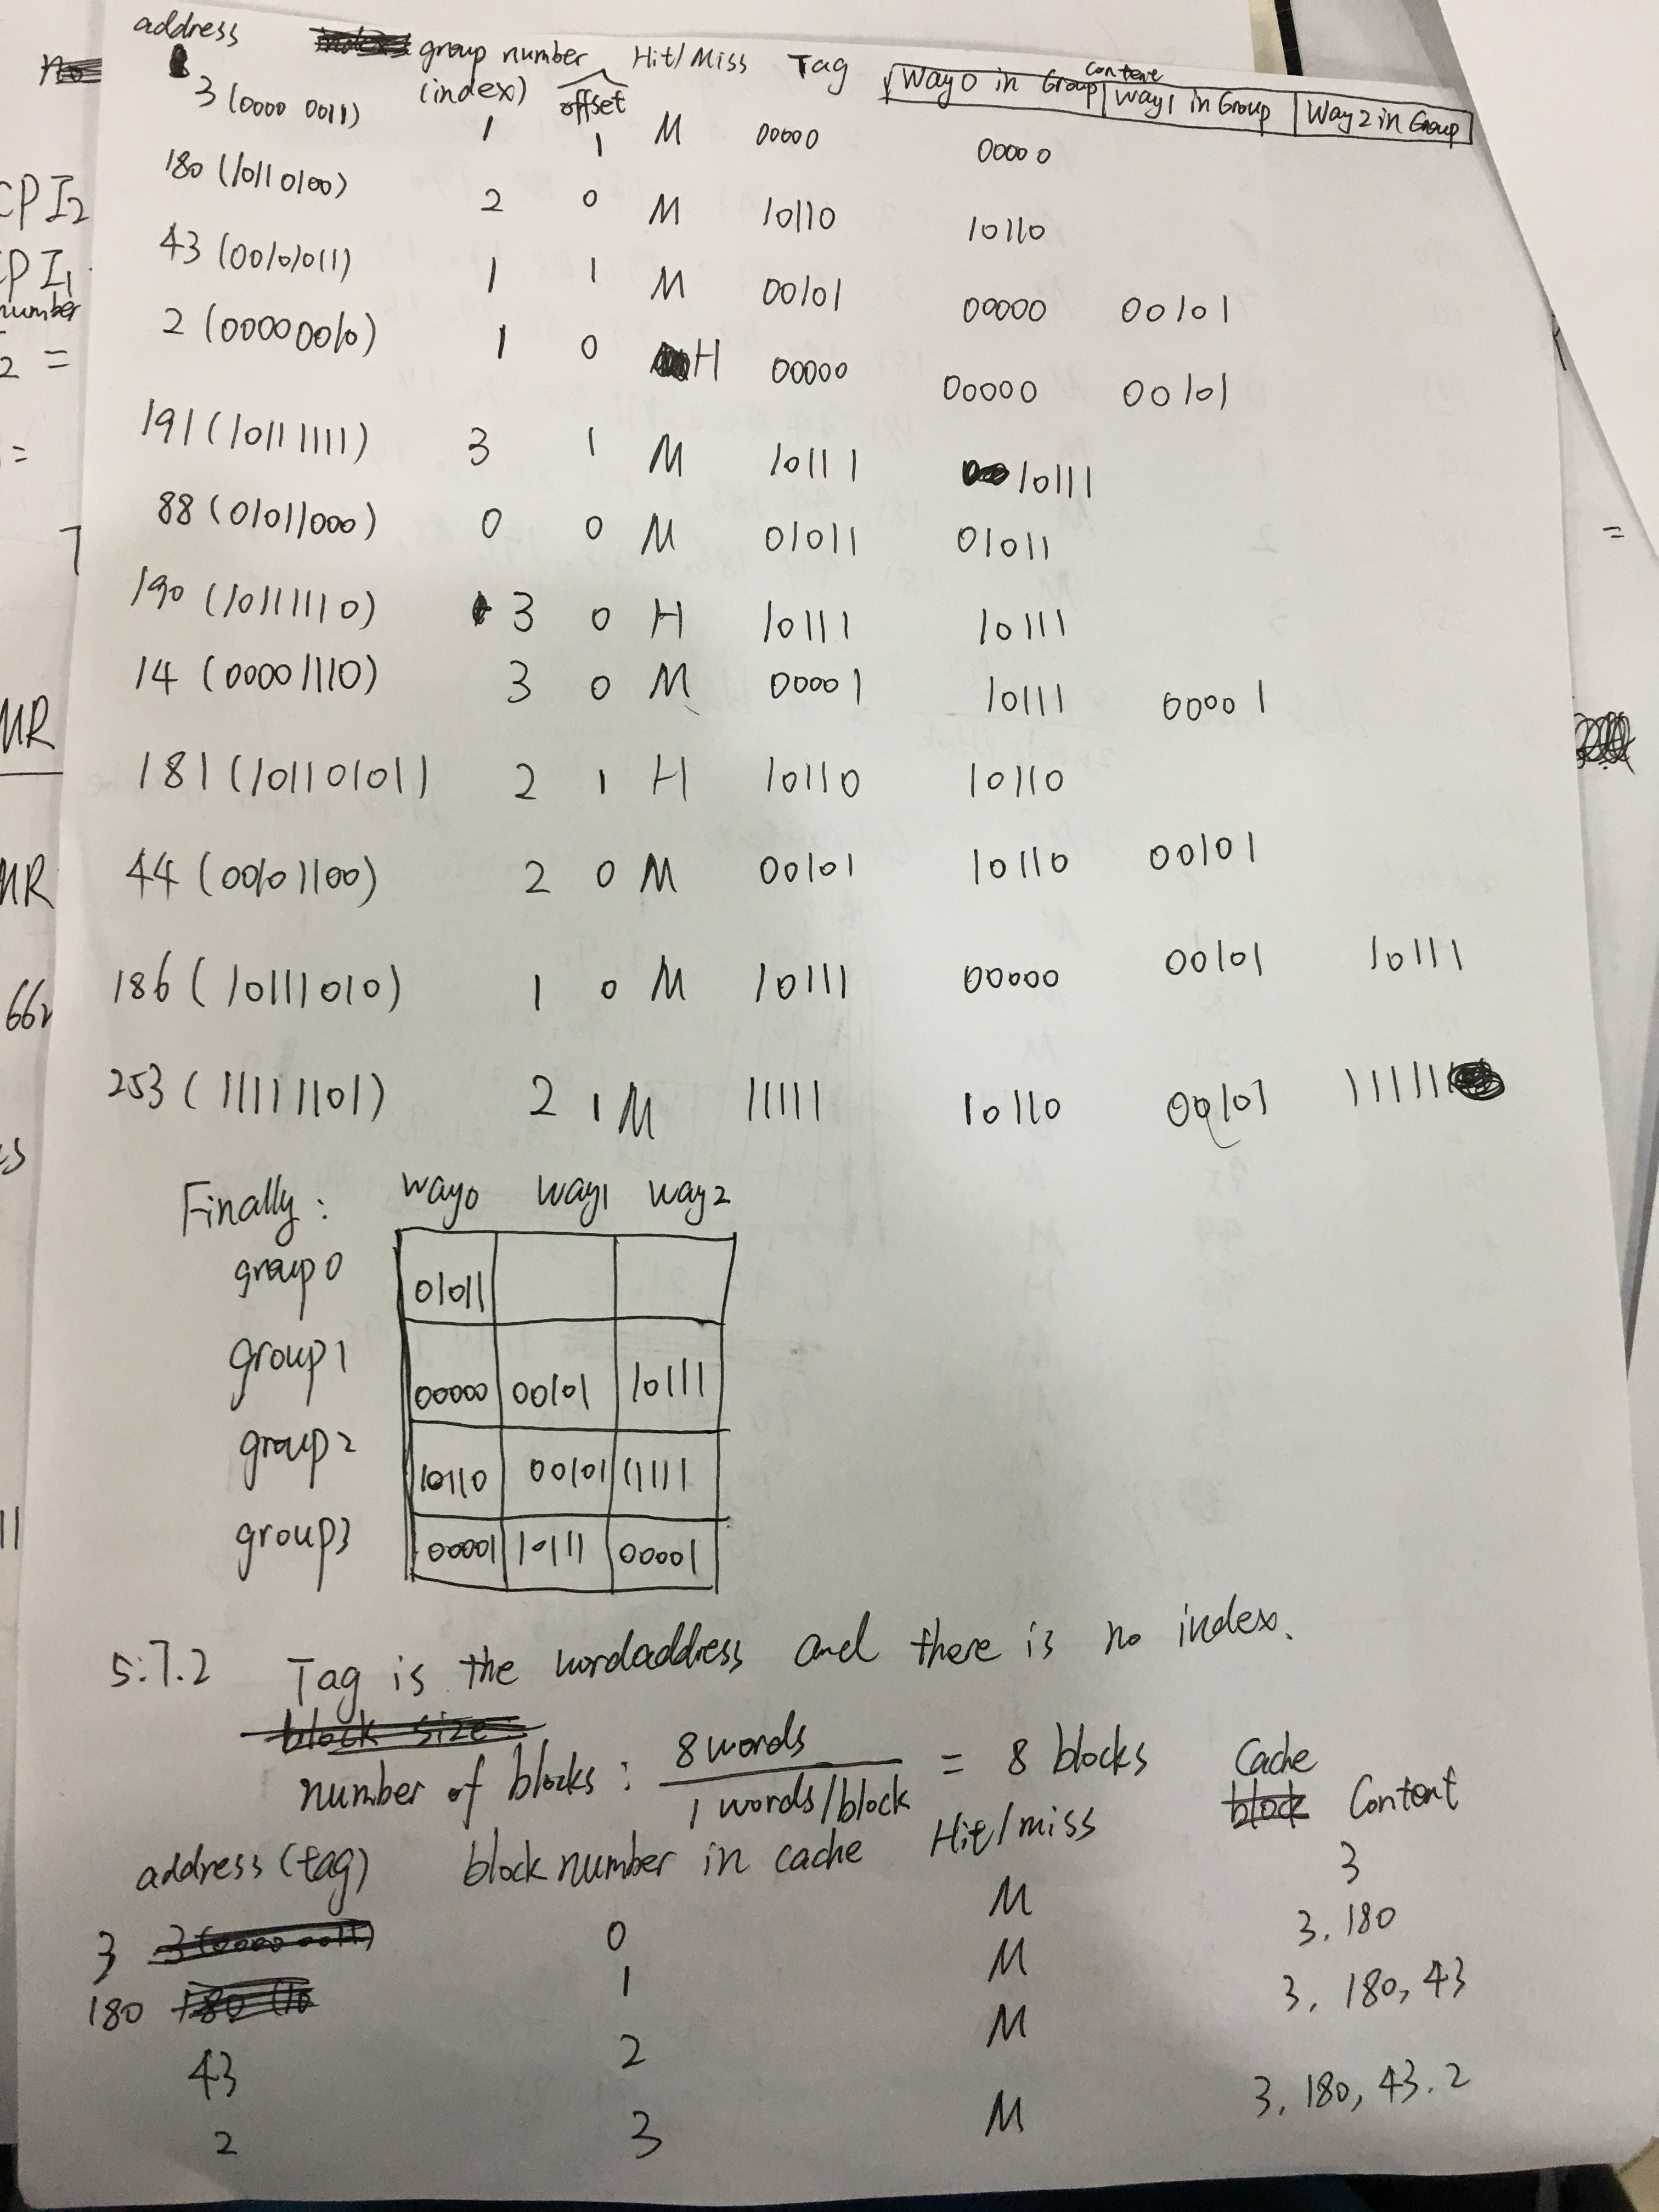 address group number Hit/Miss Tag Content
(index) offset Way0 in Group Way1 in Group Way2 in Group
3 (0000 0011) 1 1 M 00000 00000
180 (10110100) 2 0 M 10110 10110
43 (00101011) 1 1 M 00101 00000 00101
2 (00000010) 1 0 H 00000 00000 00101
191 (10111111) 3 1 M 10111 10111
88 (01011000) 0 0 M 01011 01011
190 (10111110) 3 0 H 10111 10111
14 (00001110) 3 0 M 00001 10111 00001
181 (101101011) 2 1 H 10110 10110
44 (00101100) 2 0 M 00101 10110 00101
186 (10111010) 1 0 M 10111 00000 00101 10111
253 (11111101) 2 1 M 11111 10110 00101 11111
Finally: way0 way1 way2
group0 01011
group1 00000 00101 10111
group2 10110 00101 11111
group3 00001 10111 00001
5.7.2 Tag is the wordaddress and there is no index.
block size
number of blocks: 8 words / 1 words/block = 8 blocks
address (tag) block number in cache Hit/miss Cache block Content
3 3 (0000 0011) 0 M 3
180 180 (10 1 M 3, 180
43 2 M 3, 180, 43
2 3 M 3, 180, 43, 2
CPI2
CPI1
number
2 =
=
7
MR
MR
66
11
=